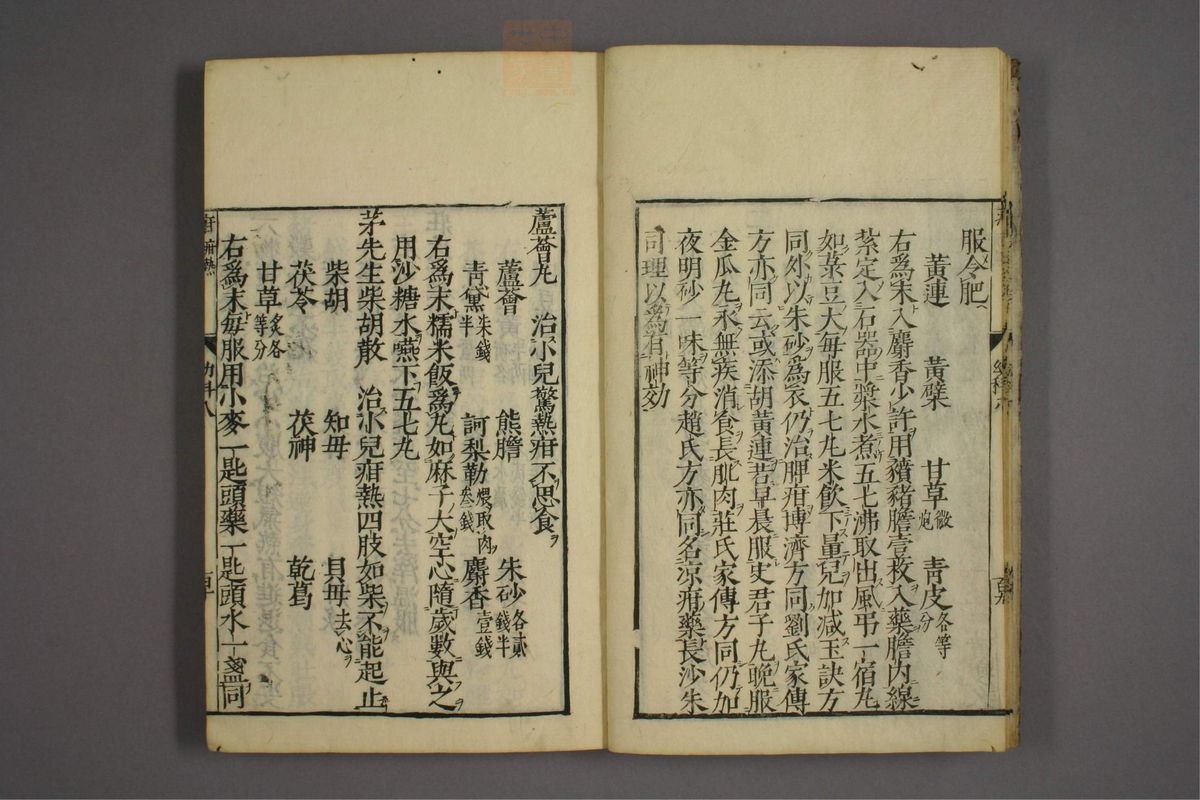 服令肥
黃連　黃檗　甘草微炮　青皮各等分
右爲末入麝香少許用豶豬膽壹枚入藥膽内線
紮定入石器中漿水煮五七沸取出風弔一宿丸
如菉豆大每服五七丸米飲下量兒加减玉訣方
同外以朱砂爲衣仍治脾疳博濟方同劉氏家傳
方亦同云或添胡黃連若早晨服史君子丸晚服
金瓜丸永無疾消食長肌肉莊氏家傳方同仍加
夜明砂一味等分趙氏方亦同名凉疳藥長沙朱
司理以爲有神効
蘆薈丸　治小兒驚熱疳不思食
蘆薈　熊膽　朱砂各貳錢半
青黛朱錢半　訶梨勒煨取肉叁錢　麝香壹錢
右爲末糯米飯爲丸如麻子大空心隨歲數與之
用沙糖水嚥下五七丸
茅先生柴胡散　治小兒疳熱四肢如柴不能起止
柴胡　知母　貝母去心
茯苓　茯神　乾葛
甘草炙各等分
右爲末每服用小麥一匙頭藥一匙頭水一盞同
幼科八